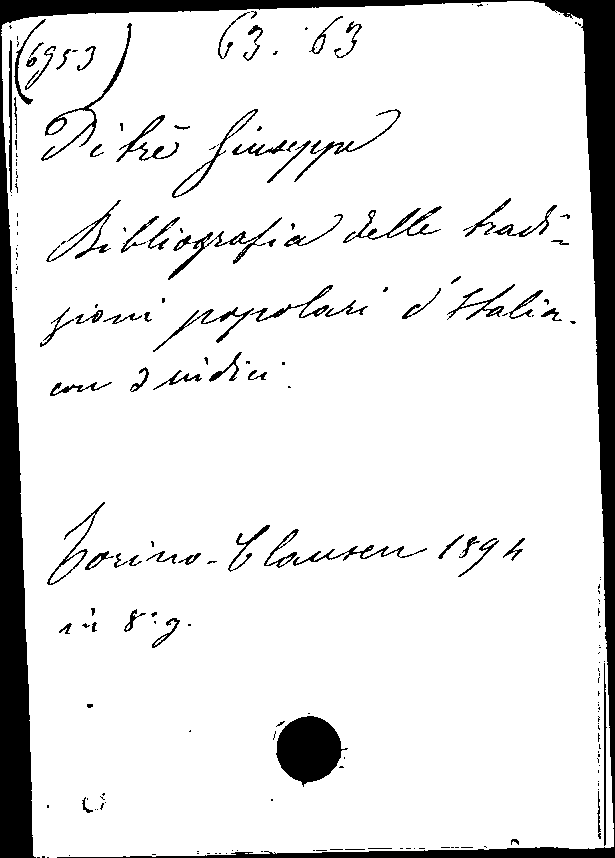 (6953) 63. 63
Pitrè Giuseppe
Bibliografia delle tradi=
zioni popolari d'Italia.
con 3 indici.
Torino-Clausen 1894
in 8.° g.